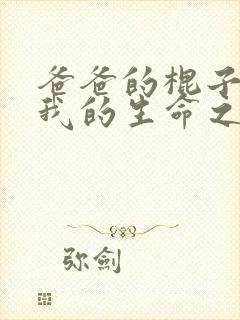 爸爸的棍子
我的生命之
弥劍